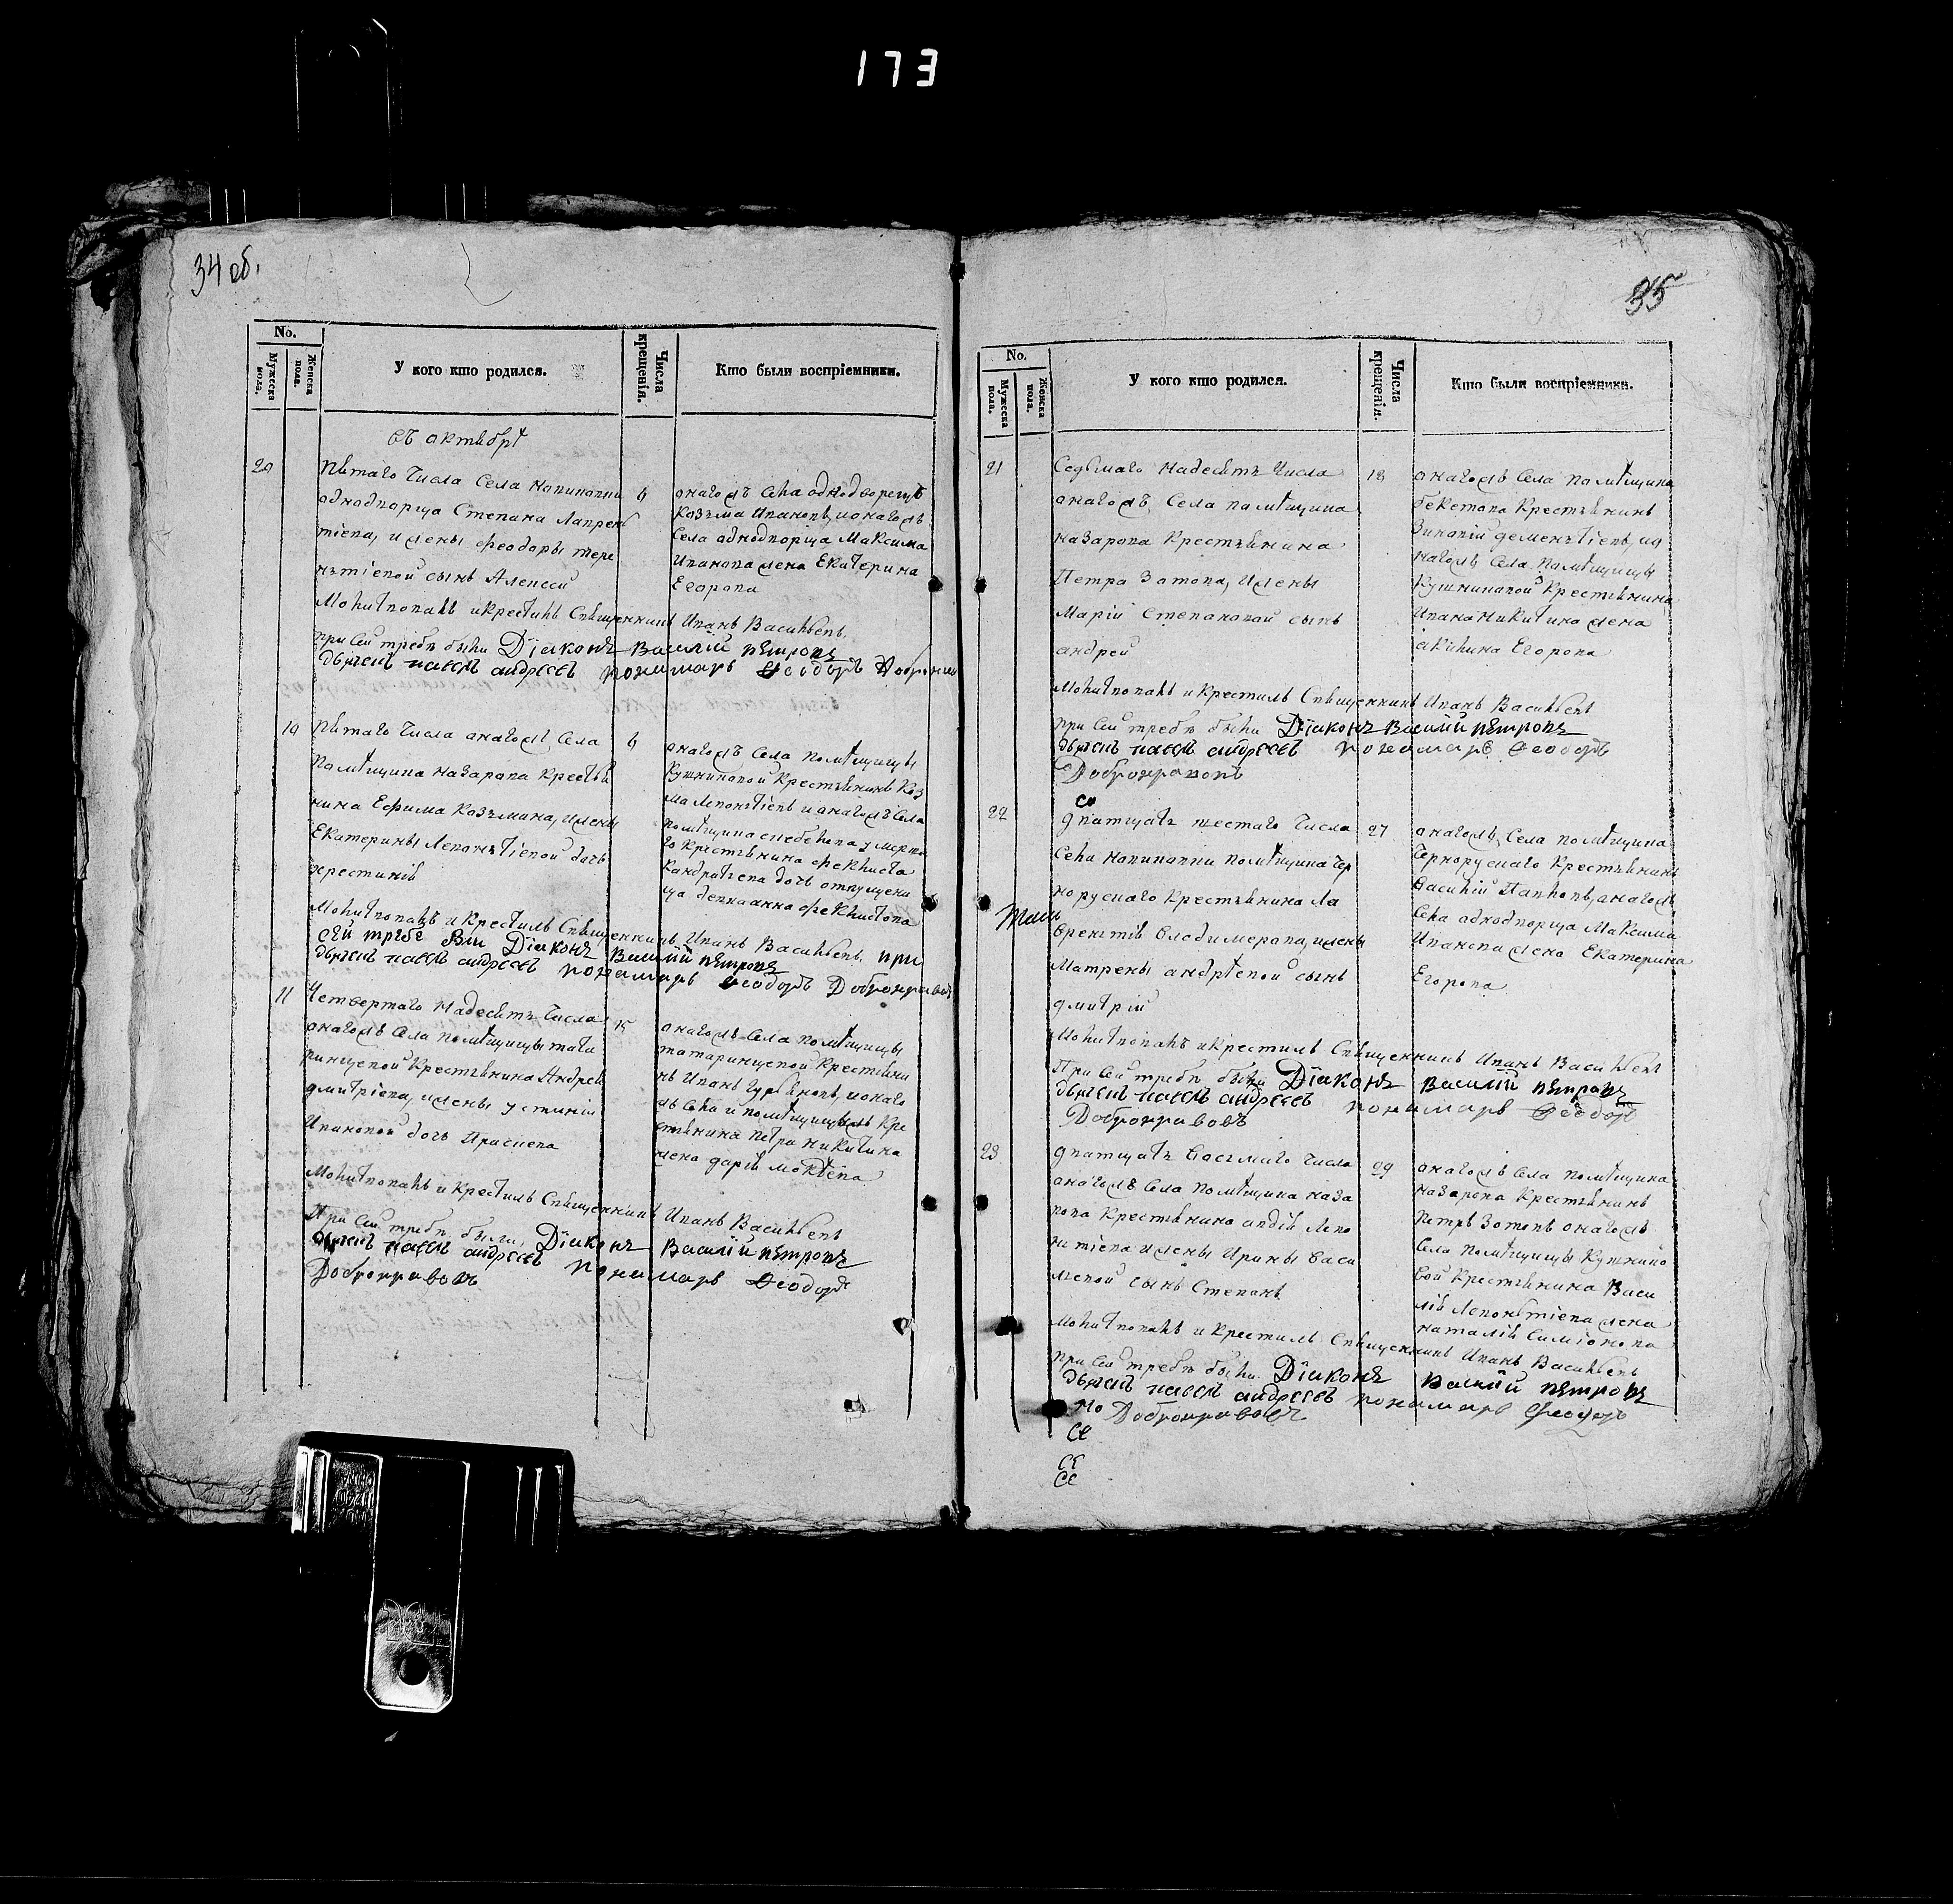 173
34 об.
No.
Мужеска пола.
Женска пола.
У кого кто родился.
Числа крещенія.
Кто были воспріемники.
въ октябрѣ
20
Пятаго числа Села
однодворца Степана Лаврен
тіева, и жены Феодоры тере
нтіевой сынъ Алексей
6
онагожъ села однодворецъ
Козьма Ивановъ, и онагожъ
Села однодворца Максима
Иванова жена Екатерина
Егорова
Молитвовалъ и крестилъ Священникъ Иванъ Васильевъ.
при сей требѣ были Дїаконъ Василїй пѣтровъ
дьячекъ павелъ андреевъ пономарь Ѳеодоръ
10
Пятаго числа онагожъ Села
Помѣщика назарова крестья
нина Ефима Козьмина, и жены
Екатерины Леонтіевой дочь
6
онагожъ Села помѣщицы
Кушниковой крестьянинъ Коз
ма Леонтіевъ и онагожъ Села
го крестьянина Феклиста
Кандратьева дочь
девка анна Феклистова
Молитвовалъ и крестилъ Священникъ Иванъ Васильевъ. при
сей требе Были Дїаконъ Василїй пѣтровъ
дьячекъ павелъ андреевъ пономарь Ѳеодоръ Добронравовъ
11
Четвертаго надесять числа
онагожъ Села помѣщицы тата
ринцевой крестьянина Андрея
дмитріева, и жены устиніи
Ивановой дочь Праскева
15
онагожъ Села помѣщицы
татаринцевой крестьяни
нъ Иванъ Гурьяновъ, и онаго
жъ Села и помѣщицыжъ кре
стьянина петра никитина
жена дарія
Молитвовалъ и крестилъ Священникъ Иванъ Васильевъ
При сей требѣ были, Дїаконъ Василїй пѣтровъ
дьячекъ павелъ андреевъ пономарь Ѳеодоръ
Добронравовъ
35
No.
Мужеска пола.
Женска пола.
У кого кто родился.
Числа крещенія.
Кто были воспріемники.
21
Седьмаго надесять числа
онагожъ Села помѣщика
назарова крестьянина
Петра Зотова, и жены
Маріи Степановой сынъ
андрей
18
онагожъ Села помѣщика
бекетова крестьянинъ
Зиновій деменьтіевъ, и о
нагожъ Села помѣщицы
Кушниковой крестьянина
Ивана никитина жена
акилина Егорова
Молитвовалъ и крестилъ Священникъ Иванъ Васильевъ
при сей требѣ были Дїаконъ Василїй пѣтровъ
дьячекъ павелъ андреевъ пономарь Ѳеодоръ
Добронравовъ
22
дватцать шестаго числа
Села помѣщика Чер
норускаго крестьянина Ла
врентія Владимерова, и жены
Матрены андрѣевой сынъ
дмитрій
27
онагожъ Села помѣщика
Чернорускаго крестьянинъ
Василій Павловъ, онагожъ
Села однодворца Максима
Иванова жена Екатерина
Егорова
Молитвовалъ и крестилъ Священникъ Иванъ Васильевъ
При сей требѣ были Дїаконъ Василїй пѣтровъ
дьячекъ павелъ андреевъ пономарь Ѳеодоръ
Добронравовъ
23
дватцать восьмаго числа
онагожъ Села помѣщика наза
рова крестьянина авдія Лео
нтіева и жены Ирины Васи
льевой сынъ Степанъ
29
онагожъ Села помѣщика
назарова крестьянинъ
Петръ Зотовъ онагожъ
Села помѣщицы Кушнико
вой крестьянина Васи
лія Леонтіева жена
наталія Симіонова
Молитвовалъ и крестилъ Священникъ Иванъ Васильевъ
при сей требѣ были Дїаконъ Василїй пѣтровъ
дьячекъ павелъ андреевъ пономарь Ѳеодоръ
Добронравовъ